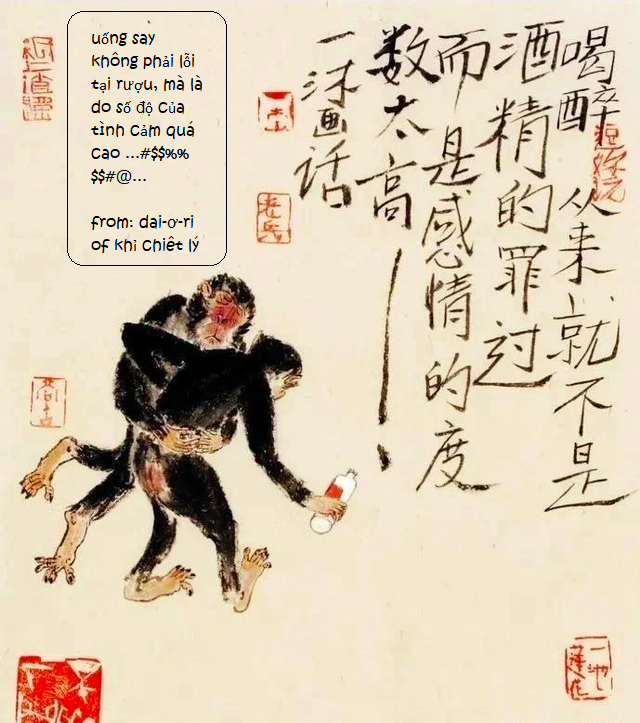 uống say
không phải lỗi
tại rượu, mà là
do số độ của
tình cảm quá
cao ...#$$%%
$$#@...
from: dai-ơ-ri
of khỉ chiêt lý
喝醉从来就不是
酒精的罪过
而是感情的度
数太高!
画话
一池莲花